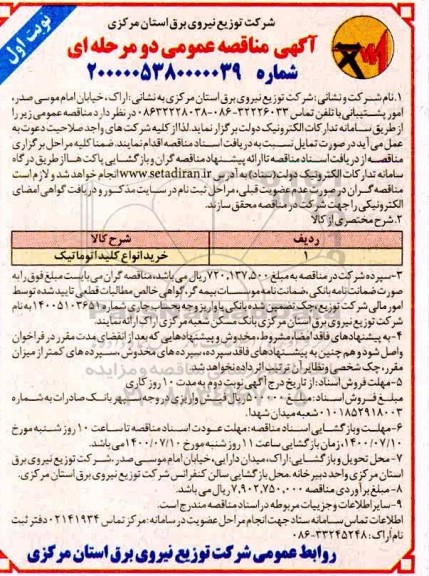 شرکت توزیع نیروی برق استان مرکزی
نوبت اول
آگهی مناقصه عمومی دو مرحله ای
شماره ۲۰۰۰۰۰۵۳۸۰۰۰۰۰۳۹
۱.نام شرکت و نشانی : شرکت توزیع نیروی برق استان مرکزی به نشانی : اراک، خیابان امام موسی صدر،
امور پشتیبانی با تلفن تماس ۳۲۲۲۶۰۳۳-۰۸۶ و ۰۸۶۳۲۲۲۸۰۳۸ در نظر دارد مناقصه عمومی زیر را
از طریق سامانه تدارکات الکترونیک دولت برگزار نماید. لذا از کلیه شرکت های واجد صلاحیت دعوت به
عمل می آید در صورت تمایل نسبت به دریافت اسناد مناقصه اقدام نمایند. ضمنا کلیه مراحل برگزاری
مناقصه از دریافت اسناد مناقصه تا ارائه پیشنهاد مناقصه گران و بازگشایی پاکت ها از طریق درگاه
سامانه تدارکات الکترونیک دولت (ستاد) به آدرس www.setadiran.ir انجام خواهد شد و لازم است
مناقصه گران در صورت عدم عضویت قبلی، مراحل ثبت نام در سایت مذکور و دریافت گواهی امضای
الکترونیکی را جهت شرکت در مناقصه محقق سازند.
۲.شرح مختصری از کالا
ردیف شرح کالا
۱ خرید انواع کلید اتوماتیک
۳-سپرده شرکت در مناقصه به مبلغ ۷۲۰،۱۳۷،۵۰۰ ریال می باشد، مناقصه گران می بایست مبلغ فوق را به
صورت ضمانت نامه بانکی، ضمانت نامه موسسات بیمه گر، گواهی خالص مطالبات قطعی تایید شده توسط
امور مالی شرکت توزیع، چک تضمین شده بانکی یا واریز وجه به حساب جاری شماره ۱۴۰۰۵۱۰۳۶۵۱ به نام
شرکت توزیع نیروی برق استان مرکزی بانک مسکن شعبه مرکزی اراک ارائه نمایند.
۴- به پیشنهادهای فاقد امضا، مشروط، مخدوش و پیشنهادهایی که بعد از انقضای مدت مقرر در فراخوان
واصل شود و هم چنین به پیشنهادهای فاقد سپرده، سپرده های مخدوش، سپرده های کمتر از میزان
مقرر، چک شخصی و نظایر آن ترتیب اثر داده نخواهد شد.
۵-مهلت فروش اسناد: از تاریخ درج آگهی نوبت دوم به مدت ۱۰ روز کاری
مبلغ فروش اسناد: مبلغ ریال واریزی در وجه سپهر بانک صادرات به شماره
۰۱۰۱۸۵۲۹۱۸۰۰۳ شعبه میدان شهدا.
۶-مهلت و بازگشایی اسناد مناقصه: مهلت عودت اسناد مناقصه تا ساعت ۱۰ روز شنبه مورخ
۱۴۰۰/۰۷/۱۰، زمان بازگشایی ساعت ۱۱ روز شنبه مورخ ۱۴۰۰/۰۷/۱۰ می باشد.
۷- محل تحویل و بازگشایی: اراک، میدان دارایی، خیابان امام موسی صدر، شرکت توزیع نیروی برق
استان مرکزی واحد دبیرخانه. محل بازگشایی سالن کنفرانس شرکت توزیع نیروی برق استان مرکزی.
۸- مبلغ برآوردی مناقصه ۷،۹۰۲،۷۵۰،۰۰۰ ریال می باشد.
۹-سایر اطلاعات و جزییات مربوطه در اسناد مناقصه مندرج است.
اطلاعات تماس سامانه ستاد جهت انجام مراحل عضویت در سامانه: مرکز تماس ۰۲۱۴۱۹۳۴ دفتر ثبت
نام اراک: ۳۳۲۴۵۲۴۸-۰۸۶
روابط عمومی شرکت توزیع نیروی برق استان مرکزی